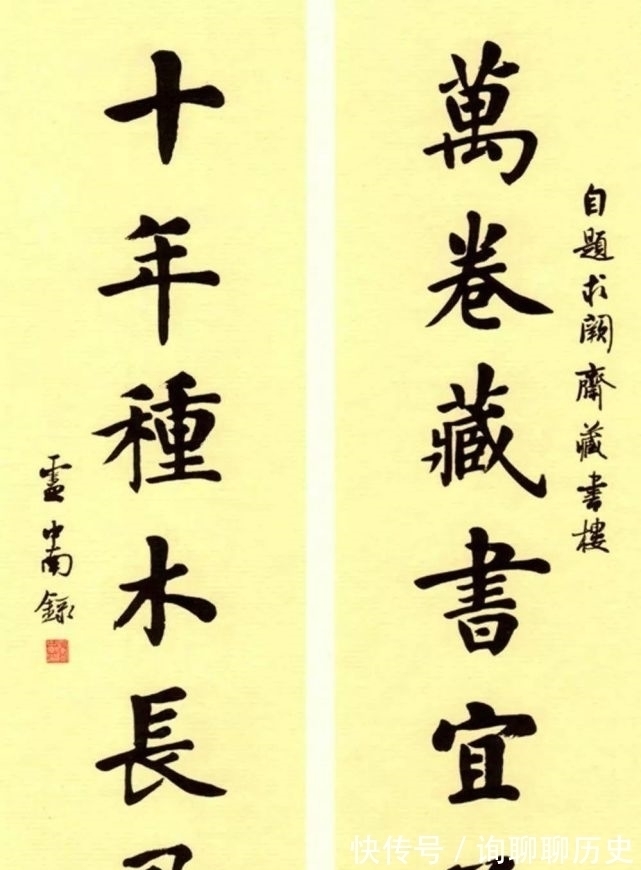 自題求闕齋藏書樓
萬卷藏書宜
十年種木長
盧中南錄
快传号 / 询聊聊历史